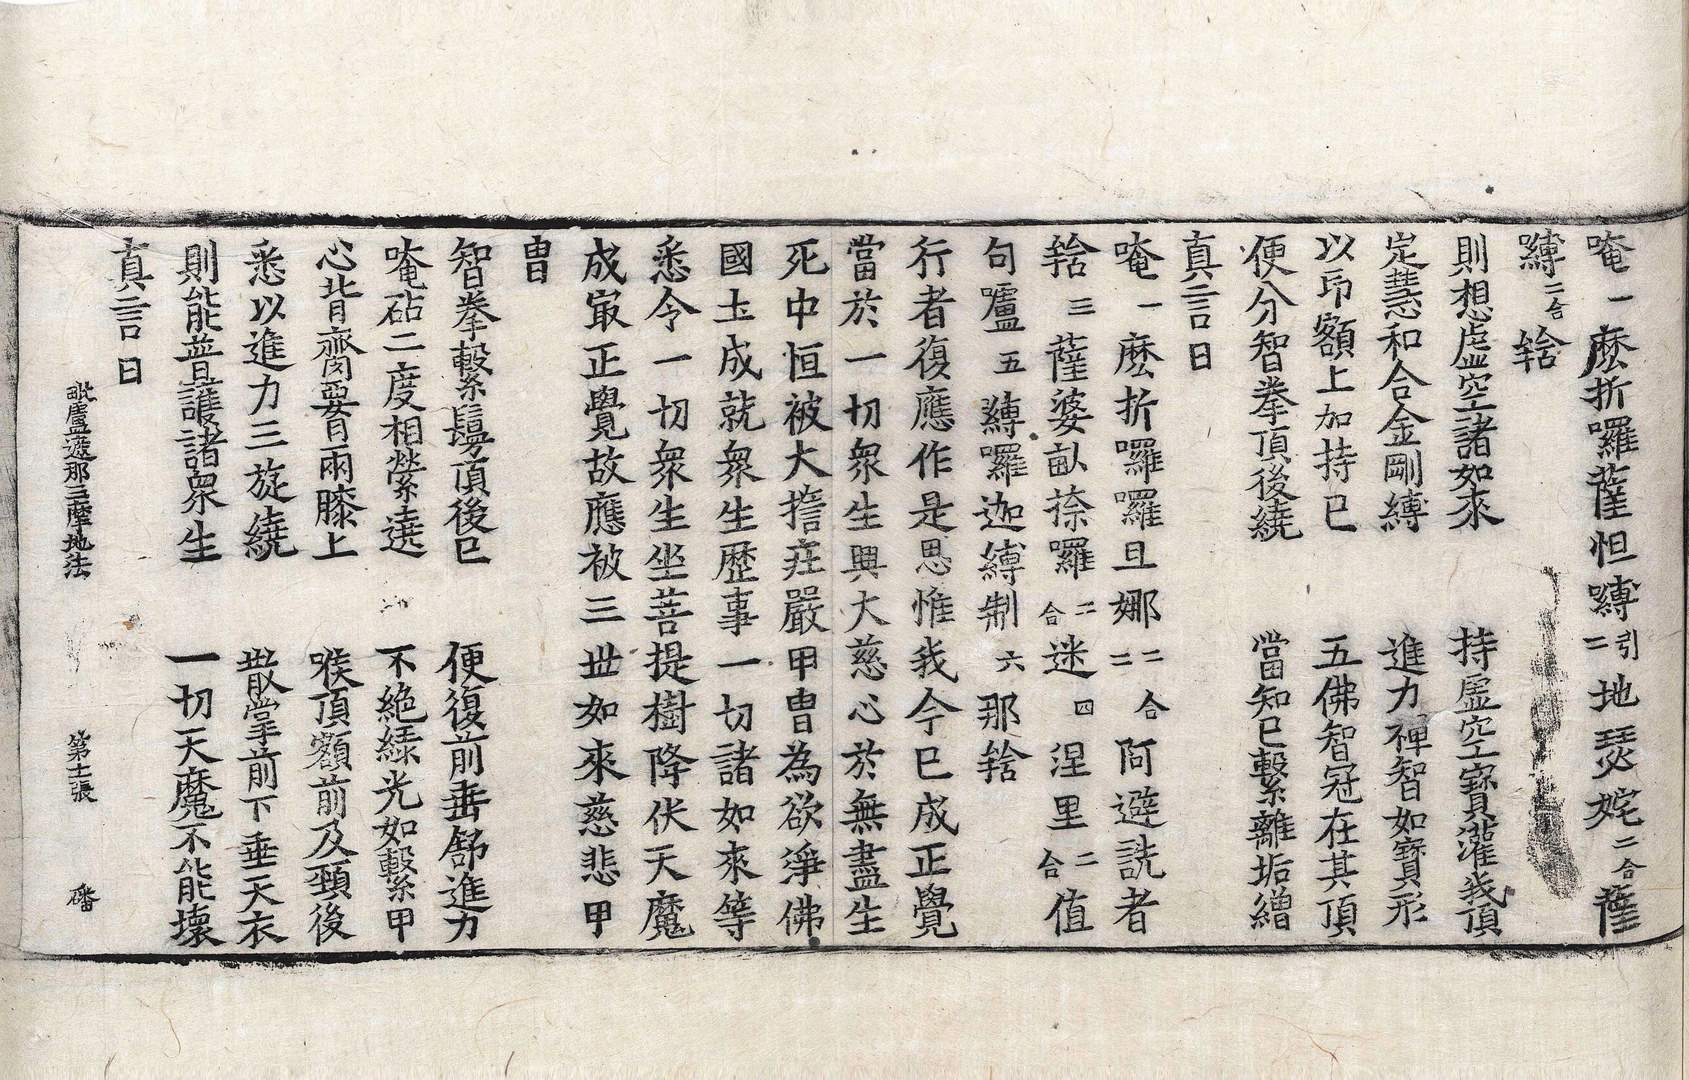 唵一麽折囉薩怛嚩二引地瑟姹二合薩
嚩二合捨
則想虛空諸如來　持虛空寶灌我頂
定慧和合金剛縛　進力禪智如寶形
以印額上加持已　五佛智冠在其頂
便分智拳頂後繞　當知已繫離垢繒
真言曰
唵一麽折囉囉旦娜二合二阿避詵者
捨三薩婆畝捺囉二合迷四涅里二合值
句嚧五縛囉迦縛制六那捨
行者復應作是思惟我今已成正覺
當於一切衆生興大慈心於無盡生
死中恒被大擔莊嚴甲胄為欲淨佛
國土成就衆生歷事一切諸如來等
悉令一切衆生坐菩提樹降伏天魔
成㝡正覺故應被三世如來慈悲甲
胄
智拳繫鬘頂後已　便復前垂舒進力
唵砧二度相縈遶　不絶緑光如繫甲
心背齊閔要兩膝上　喉頂額前及頸後
悉以進力三旋繞　散掌前下垂天衣
則能普護諸衆生　一切天魔不能壞
真言曰
毗盧遮那三摩地法　第十二張　磻